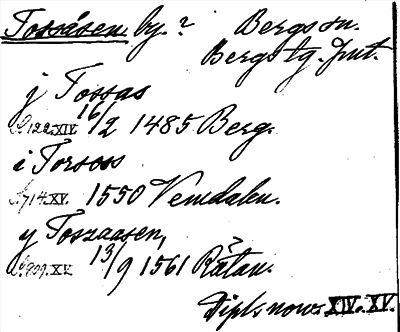 Tossåsen. by. ? Bergs sn.
Bergs tg. Jmt.
j Tossas
S. 122. XIV. 16/2 1485 Berg.
i Torsoss
S. 714. XV. 1550 Vemdalen.
y Toszaasen,
S. 809. XV. 13/9 1561 Rätan.
Dipl. norv. XIV. XV.